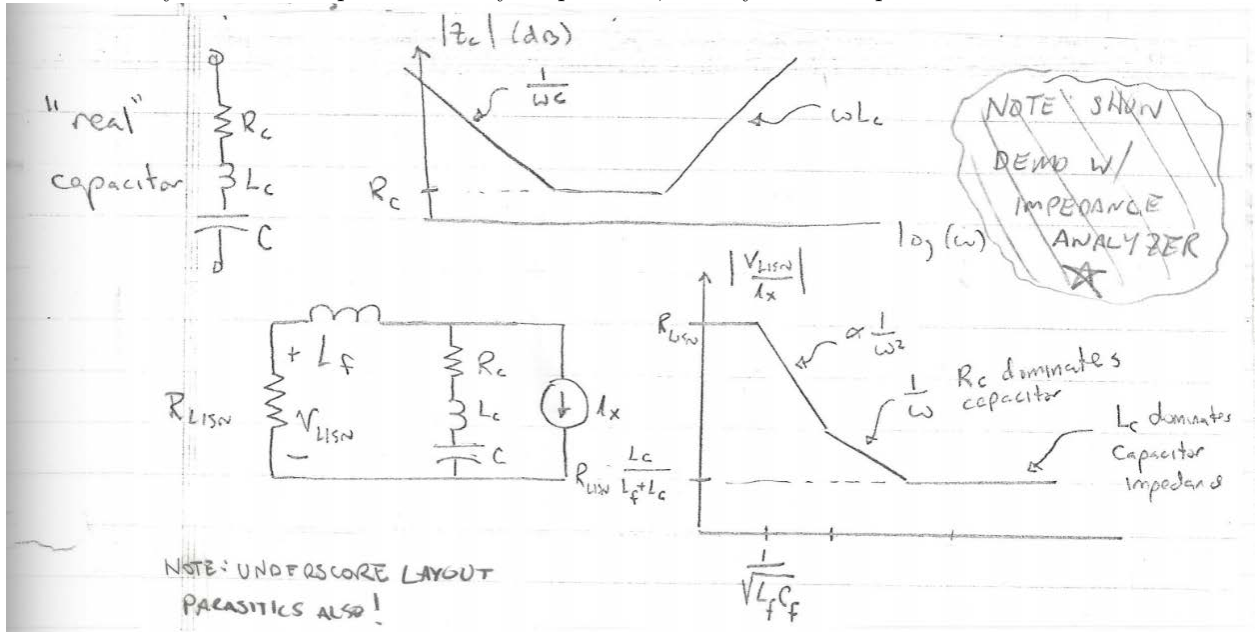 |Z_c| (dB)
"real"
capacitor
R_c
L_c
C
1/ωC
ωL_c
R_c
log(ω)
NOTE: SHOW
DEMO W/
IMPEDANCE
ANALYZER
R_LISN
+
V_LISN
−
L_f
R_c
L_c
C
i_x
|V_LISN/i_x|
R_LISN
∝ 1/ω²
1/ω R_c dominates
capacitor
L_c dominates
Capacitor
impedance
R_LISN L_c/(L_f+L_c)
1/√(L_f C_f)
NOTE: UNDERSCORE LAYOUT
PARASITICS ALSO!